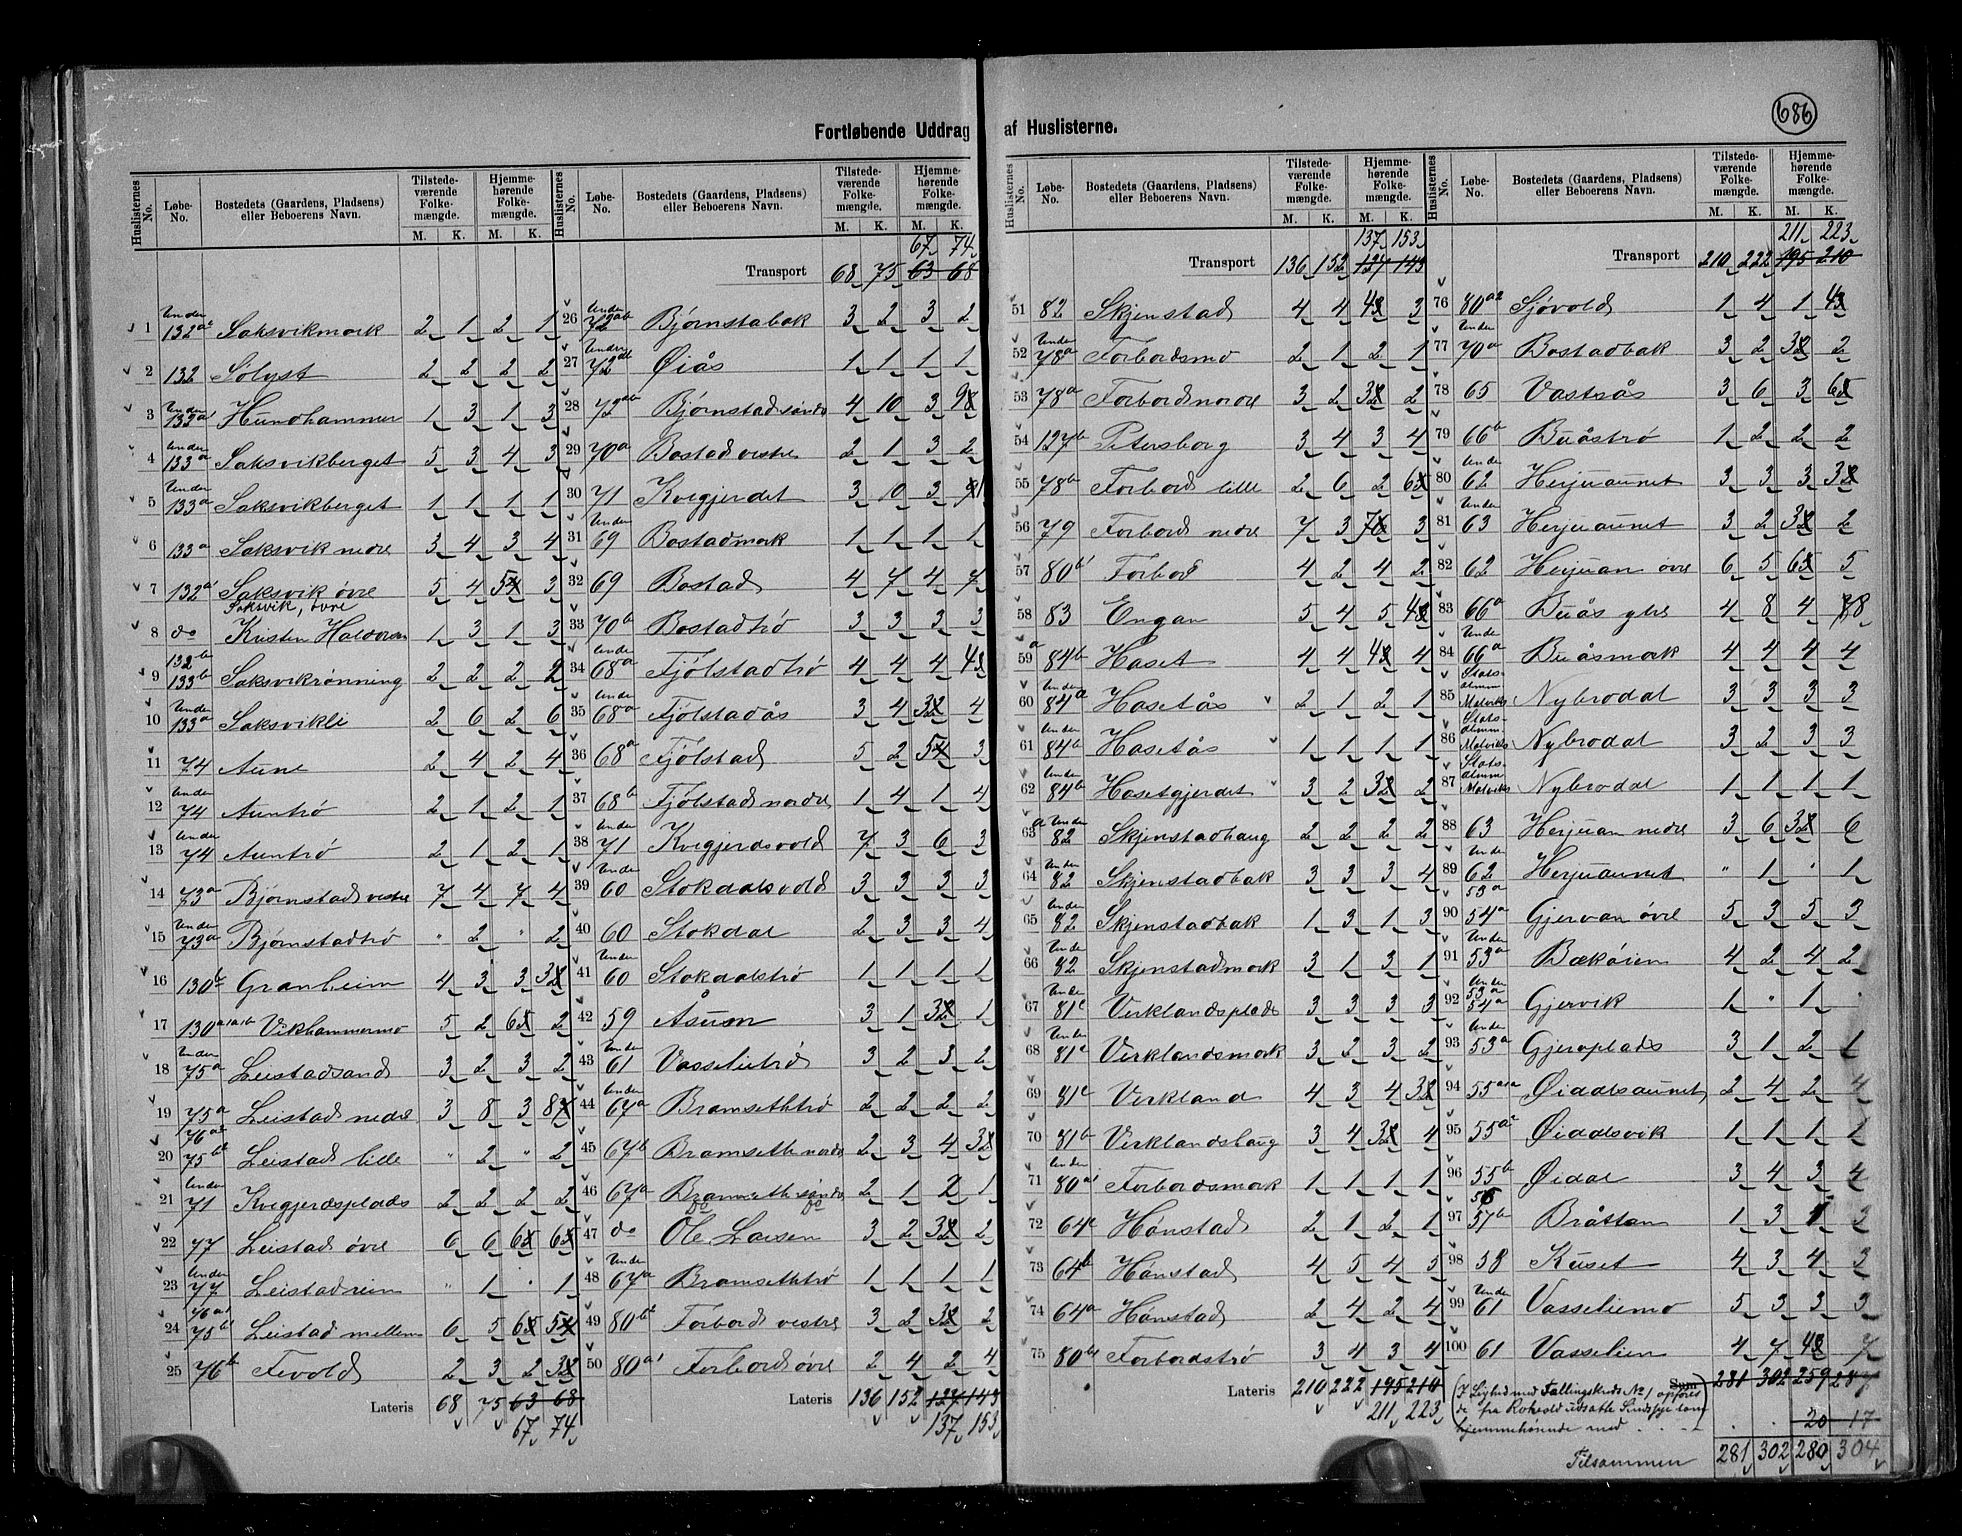 686
Fortløbende Uddrag af Huslisterne.
Huslisternes No. Løbe-No. Bostedets (Gaardens, Pladsens) eller Beboerens Navn. Tilstedeværende Folkemængde. M. K. Hjemmehørende Folkemængde. M. K.
1 Under 132a2 Saksvikmark 2 1 2 1
2 132 Sølyst 2 2 2 2
3 Under 133a1 Hundhammer 1 3 1 3
4 Under 133a Saksvikberget 5 3 4 3
5 Under 133a Saksvikberget 1 1 1 1
6 133a Saksvik nedre 3 4 3 4
7 132a1 Saksvik øvre 5 4 5 3
Saksvik, øvre
8 do Kristen Halvorsen 1 3 1 3
9 132b 133b Saksvikrønning 2 2 2 2
10 Under 133a Saksvikli 2 6 2 6
11 74 Aune 2 4 2 4
12 Under 74 Auntrø 2 1 2 1
13 Under 74 Auntrø 2 1 2 1
14 73a Bjørnstad vestre 7 4 7 4
15 Under 73a Bjørnstadtrø " 2 " 2
16 130c Granheim 4 3 3 3
17 Vikhammermo 5 2 6 2
18 Under 75a Leistadsand 3 2 3 2
19 75a Leistad nedre 3 8 3 8
20 76a2 75b2 Leistad lille " 2 " 2
21 Under 71 Kvegjerdsplads 2 2 2 2
22 77 Leistad øvre 6 6 6 6
23 Under 77 Leistadreim " 1 " 1
24 76a1 75b1 Leistad mellem 6 5 6 5
25 76b Fevold 2 3 2 3
Lateris 68 75 63 68
67 74
67 74
Transport 68 75 63 68
26 Under 72ab Bjørnstabak 3 2 3 2
27 Under 72ab Øiås 1 1 1 1
28 72ab Bjørnstad søndre 4 10 3 9
29 70a Bostad vestre 2 1 3 2
30 71 Kvegjerdet 3 10 3
31 Under 69 Bostadmark 1 1 1 1
32 69 Bostad 4 7 4 7
33 70b Bostadtrø 3 3 3 3
34 Under 68a Fjølstadtrø 4 4 4 4
35 Under 68a Fjølstadås 3 4 3 4
36 68a Fjølstad 5 2 5 3
37 68b Fjølstad nordre 1 4 1 4
38 Under 71 Kvegjerdsvold 7 3 6 3
39 60 Stokdalsvold 3 3 3 3
40 60 Stokdal 2 3 3 4
41 Under 60 Stokdalstrø 1 1 1 1
42 59 Åsum 3 1 3 1
43 Under 61 Vasselietrø 3 2 3 2
44 Under 67a Bramsethtrø 2 2 2 2
45 67b Bramseth nordre 2 3 4 3
46 67a Bramseth søndre 2 1 2 1
do do
47 do Ole Larsen 3 2 3 2
48 Under 67a Bramsethtrø 1 1 1 1
49 80b2 Forbord vestre 3 2 3 2
50 80a1 Forbord øvre 2 4 2 4
Lateris 136 152 127 143
137 153
137 153
Transport 136 152 127 143
51 82 Skjenstad 4 4 4 3
52 Under 78a Forbordsmo 2 1 2 1
53 78a Forbord nordre 3 2 3 2
54 127b Petersborg 3 4 3 4
55 78b Forbord lille 2 6 2 6
56 79 Forbord nedre 7 3 7 3
57 80b1 Forbord 4 2 4 2
58 83 Engan 5 4 5 4
59a 84b Haset 4 4 4 4
60 Under 84a Hasetås 2 1 2 1
61 Under 84b Hasetås 1 1 1 1
62 Under 84b Hasetgjerdet 3 2 3 2
63a Under 82 Skjenstadhaug 2 2 2 2
64 Under 82 Skjenstadbak 3 3 3 4
65 Under 82 Skjenstadbak 1 3 1 3
66 Under 82 Skjenstadmark 3 1 3 1
67 Under 81c Virklandsplads 3 3 3 3
68 Under 81c Virklandsmark 3 2 3 2
69 81c Virkland 4 3 4 3
70 81b Virklandshaug 3 4 3 4
71 Under 80a1 Forbordsmark 1 1 1 1
72 64c Hønstad 2 1 2 1
73 64b Hønstad 4 5 4 5
74 64a Hønstad 2 4 2 4
75 Forbordstrø 3 4 3 4
Lateris 210 222 195 210
211 223
211 223
Transport 210 222 195 210
76 80a2 Sjøvold 1 4 1 4
77 Under 70a Bostadbak 3 2 3 2
78 65 Vastrås 3 6 3 6
79 66b Buåstrø 1 2 2 2
80 Under 62 Herjuaunet 3 3 3 3
81 Under 63 Herjuaunet 3 2 3 2
82 62 Herjuan øvre 6 5 6 5
83 66a Buås ytre 4 8 4 8
84 Under 66a Buåsmark 4 4 4 4
85 Statsalmm Malviks Nybrodal 3 3 3 3
86 Statsalmm Malviks Nybrodal 3 2 3 3
87 Statsalmm Malviks Nybrodal 1 1 1 1
88 63 Herjuan nedre 3 6 3 6
89 Under 62 Herjuaunet " 1 " 1
90 53a 54a Gjervan øvre 5 3 5 3
91 Under 53a Bækøien 4 2 4 2
92 Under 53a 54a Gjervik 1 " 1
93 Under 53a Gjervplads 3 1 2 1
94 55a1a Øidalsaunet 2 4 2 4
95 55a2 Øidalsvik 1 1 1 1
96 55b Øidal 3 4 3 4
97 56 57b Bråttan 1 3 1 3
98 58 Kuset 4 3 4 3
99 Under 61 Vasseliemo 5 3 3 3
100 61 Vasselien 4 7 4 7
Sum 281 302 259 287
(I Lighed med Tællingskreds No 1 opføres
de fra Rotvold udsatte Sindssyge som
hjemmehørende med . . . . 20 17
Tilsammen 281 302 280 304